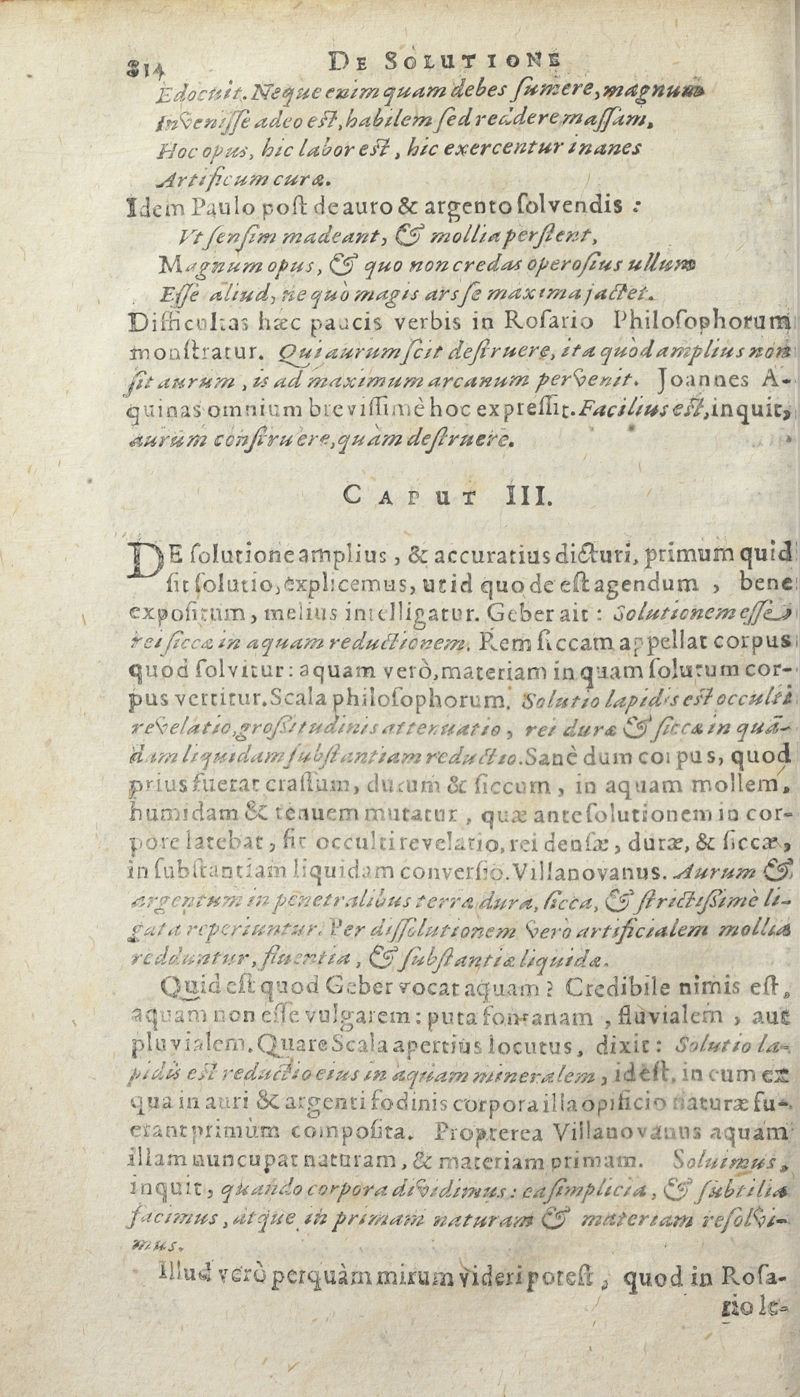 314 DE SOLUTIONE
Edocuit. Neque enim quam debes ſumere, magnum
Inveniſſe adeo eſt, habilem ſed reddere maſſam,
Hoc opus, hic labor eſt, hic exercentur inanes
Artificum curæ.
Idem Paulo poſt de auro & argento ſolvendis :
Vt ſenſim madeant, & mollia perſtent,
Magnum opus, & quo non credas operoſius ullum
Eſſe aliud, ne quo magis ars ſe maxima jactet.
Difficultas hæc paucis verbis in Roſario Philoſophorum
monſtratur. Qui aurum ſcit deſtruere, ita quod amplius non
ſit aurum , is ad maximum arcanum pervenit. Joannes A-
quinas omnium breviſſimè hoc expreſſit. Facilius eſt, inquit,
aurum conſtruere, quàm deſtruere.
CAPUT III.
DE ſolutione amplius , & accuratius dicturi, primum quid
ſit ſolutio, explicemus, ut id quo de eſt agendum , bene
expoſitum , melius intelligatur. Geber ait : Solutionem eſſe
rei ſiccæ in aquam reductionem. Rem ſiccam appellat corpus
quod ſolvitur : aquam verò, materiam in quam ſolutum cor-
pus vertitur. Scala philoſophorum. Solutio lapidis eſt occulti
revelatio, groſſitudinis attenuatio , rei duræ & ſiccæ in quā-
dam liquidam ſubſtantiam reductio. Sanè dum corpus, quod
prius fuerat craſſum, durum & ſiccum , in aquam mollem,
humidam & tenuem mutatur , quæ ante ſolutionem in cor-
pore latebat , fit occulti revelatio, rei denſæ , duræ, & ſiccæ ,
in ſubſtantiam liquidam converſio. Villanovanus. Aurum &
argentum in penetralibus terra dura, ſicca, & ſtrictiſſimè li-
gata reperiuntur. Per diſſolutionem vero artificialem mollia
redduntur, fluentia , & ſubſtantiæ liquidæ.
Quid eſt quod Geber vocat aquam ? Credibile nimis eſt,
aquam non eſſe vulgarem : puta fontanam , fluvialem , aut
pluvialem. Quare Scala apertius locutus, dixit : Solutio la-
pidis eſt reductio eius in aquam mineralem , id eſt, in eum ex
qua in auri & argenti fodinis corpora illa opificio naturæ fu-
erant primùm compoſita. Propterea Villanovanus aquam
illam nuncupat naturam , & materiam primam. Soluimus,
inquit, quando corpora dividimus : ea ſimplicia , & ſubtilia
facimus , atque in primam naturam & materiam reſolvi-
mus.
Illud verò perquàm mirum videri poteſt , quod in Roſa-
rio le-